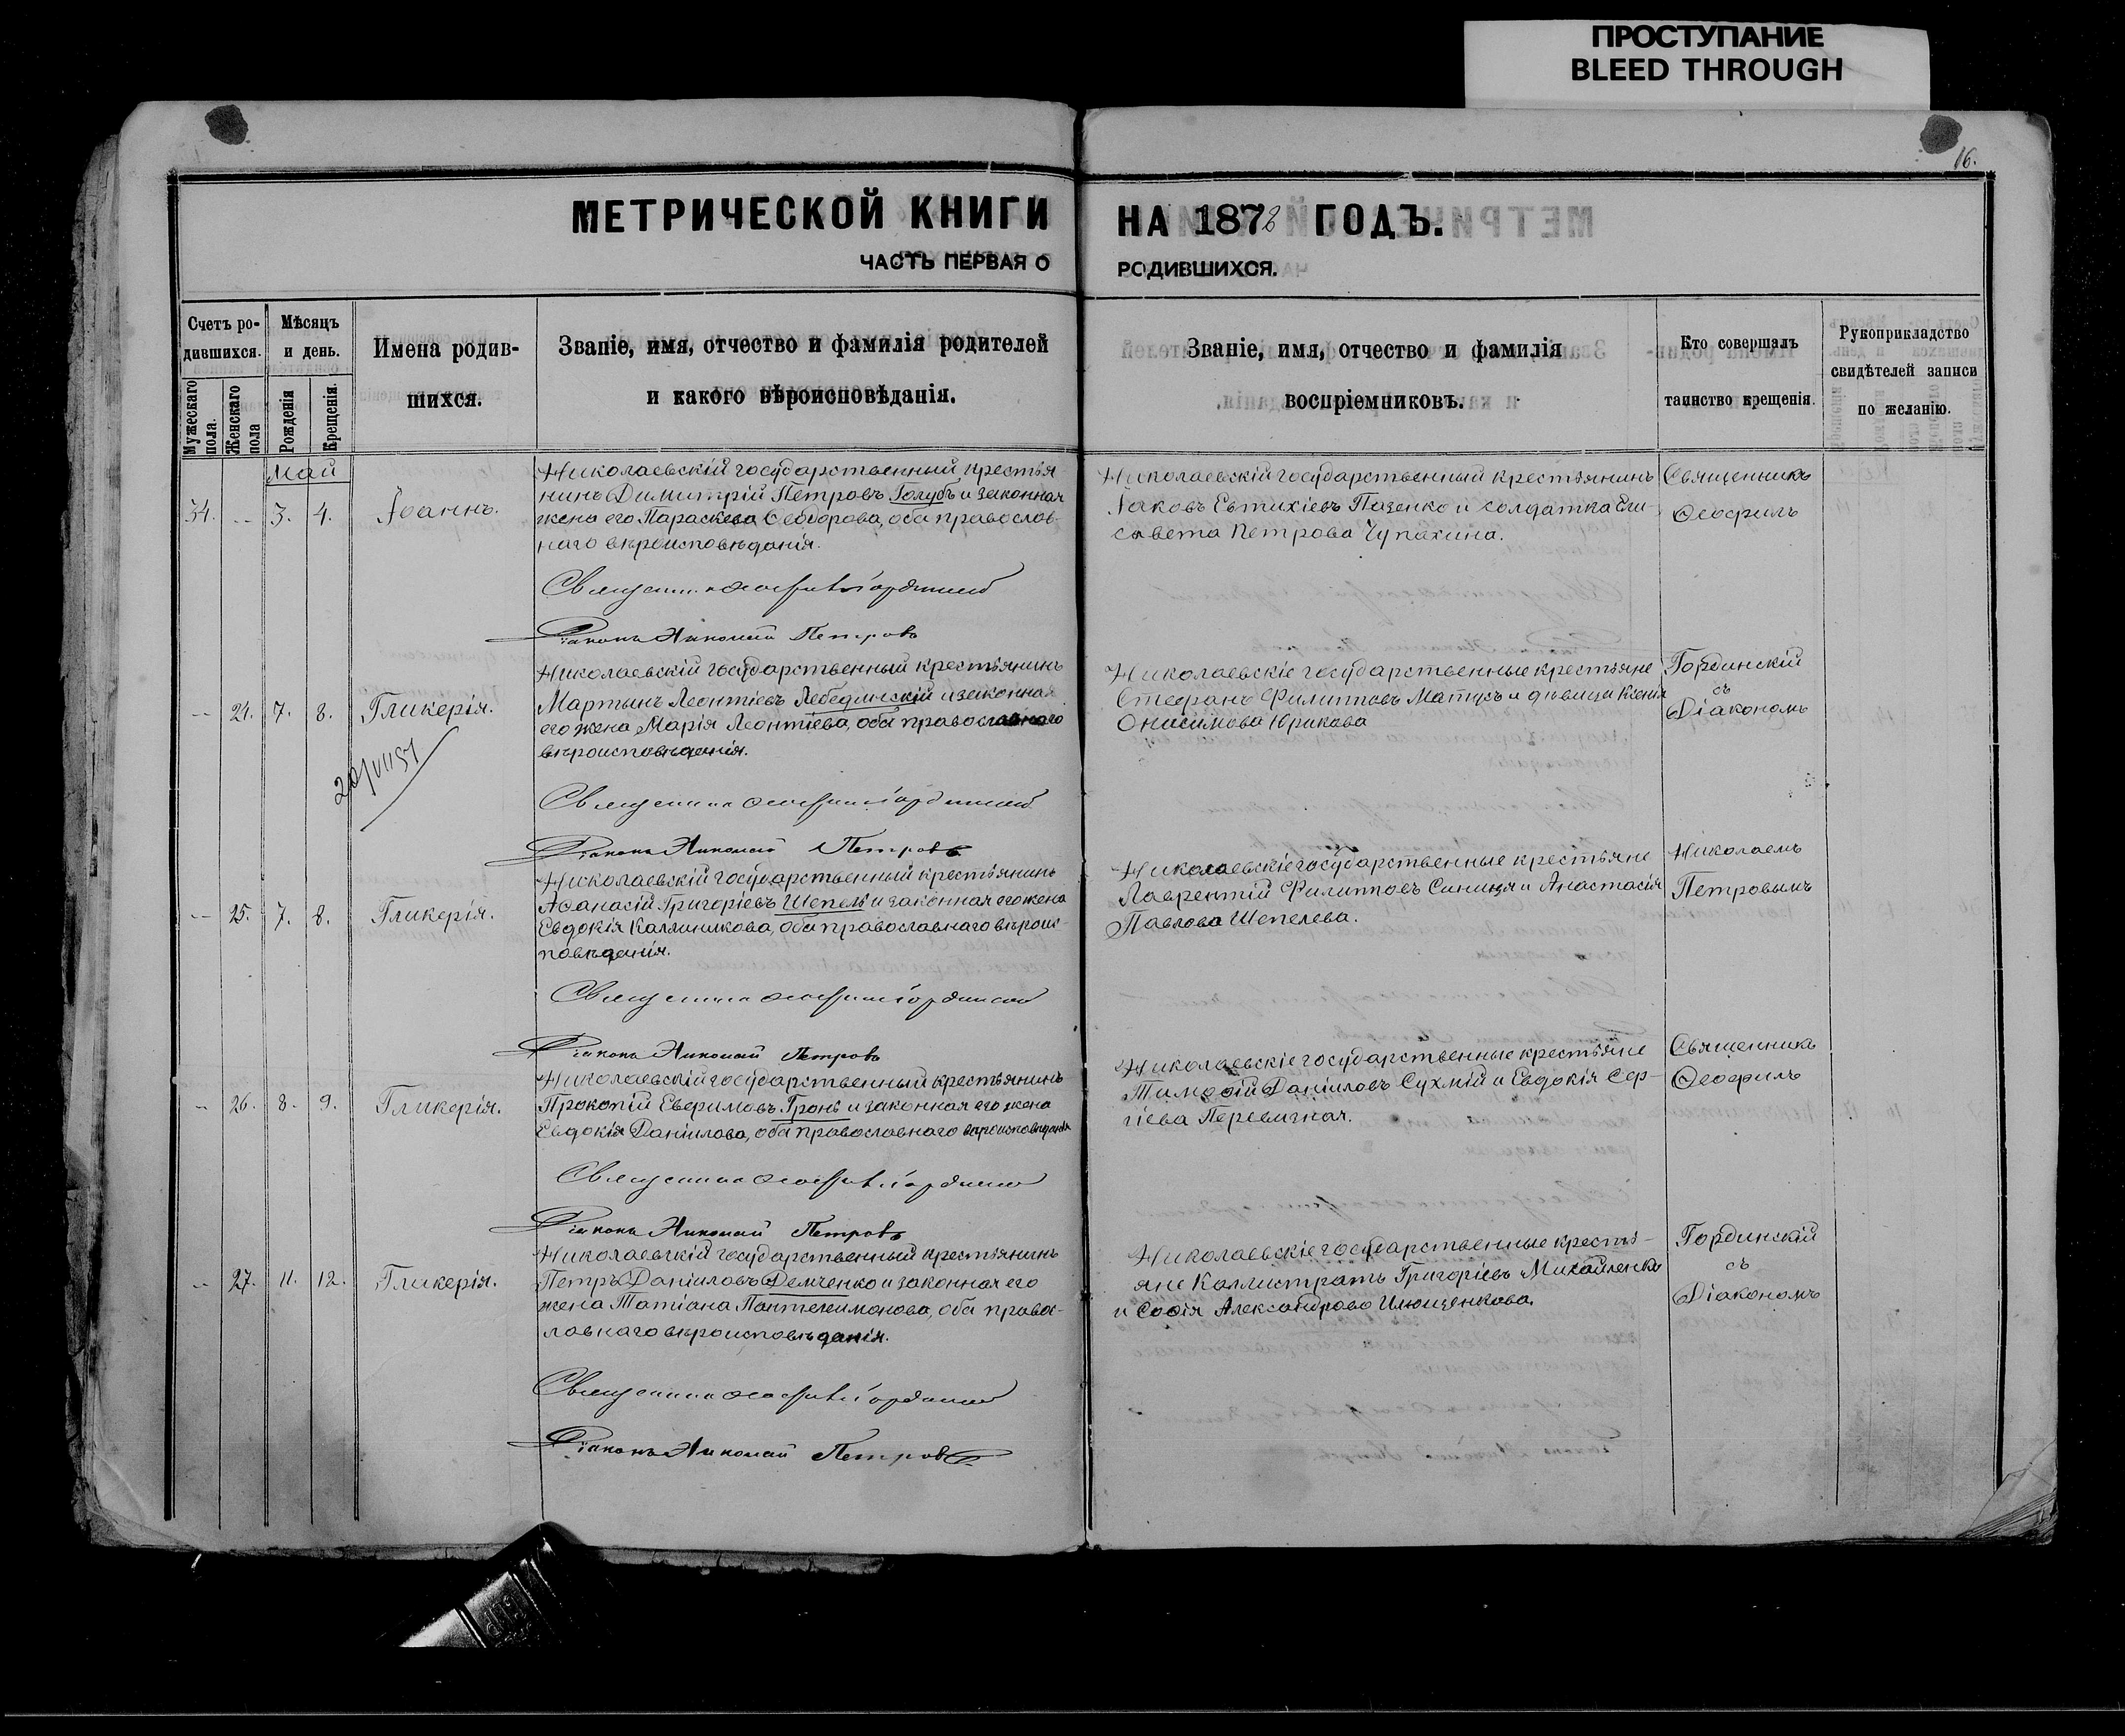 ПРОСТУПАНИЕ
BLEED THROUGH
16.
МЕТРИЧЕСКОЙ КНИГИ НА 1878 ГОДЪ.
ЧАСТЬ ПЕРВАЯ О РОДИВШИХСЯ.
Счетъ ро-
дившихся.
Мужескаго
пола.
Женскаго
пола
Мѣсяцъ
и день.
Рожденія
Крещенія.
Имена родив-
шихся.
Званіе, имя, отчество и фамилія родителей
и какого вѣроисповѣданія.
Званіе, имя, отчество и фамилія
воспріемниковъ.
Кто совершалъ
таинство крещенія.
Рукоприкладство
свидѣтелей записи
по желанію.
Май
34. -- 3. 4. Іоаннъ.
Николаевскій государственный крестья
нинъ Димитрій Петровъ Голубъ и законная
жена его Параскева Ѳеодорова, оба православ-
наго вѣроисповѣданія.
Діаконъ Николай Петровъ
Николаевскій государственный крестьянинъ
Іаковъ Евтихіевъ Пазенко и солдатка Ели-
савета Петрова Чупахина.
Священникъ
Ѳеофилъ
-- 24. 7. 8. Гликерія.
Николаевскій государственный крестьянинъ
Мартынъ Леонтіевъ Лебединскій и законная
его жена Марія Леонтіева, оба православнаго
вѣроисповѣданія.
Діаконъ Николай Петровъ
Николаевскіе государственные крестьяне
Стефанъ Филипповъ Матусъ и дѣвица Ксенія
Онисимова Юрикова
Гординскій
съ
Діакономъ
-- 25. 7. 8. Гликерія.
Николаевскій государственный крестьянинъ
Аѳанасій Григоріевъ Шепель и законная его жена
Евдокія Каллиникова, оба православнаго вѣроис-
повѣданія.
Діаконъ Николай Петровъ
Николаевскіе государственные крестьяне
Лаврентій Филипповъ Синиця и Анастасія
Павлова Шепелева.
Николаемъ
Петровымъ
-- 26. 8. 9. Гликерія.
Николаевскій государственный крестьянинъ
Прокопій Евфимовъ Гронь и законная его жена
Евдокія Даніилова, оба православнаго вѣроисповѣданія
Діаконъ Николай Петровъ
Николаевскіе государственные крестьяне
Тимоѳій Даніиловъ Сухмій и Евдокія Сер-
гіева
Священникъ
Ѳеофилъ
-- 27. 11. 12. Гликерія.
Николаевскій государственный крестьянинъ
Петръ Даніиловъ Демченко и законная его
жена Татіана Пантелимонова, оба правос-
лавнаго вѣроисповѣданія.
Діаконъ Николай Петровъ
Николаевскіе государственные кресть-
яне Каллистратъ Григоріевъ Михайленко
и Софія Александрова Илющенкова.
Гординскій
съ
Діакономъ